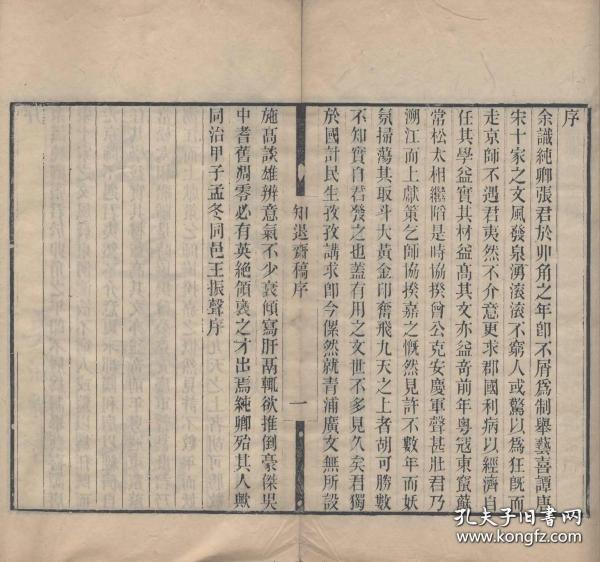 序
余識純卿張君於丱角之年卽不屑爲制舉藝喜譚唐
宋十家之文風發泉湧滾滾不窮人或驚以爲狂旣而
走京師不遇君夷然不介意更求郡國利病以經濟自
任其學益實其材益高其文亦益奇前年粵冦東竄蘇
常松太相繼陷是時協揆曾公克安慶軍聲甚壯君乃
溯江而上獻策乞師協揆嘉之慨然見許不數年而妖
氛掃蕩其取斗大黃金印奮飛九天之上者胡可勝數
不知實自君發之也蓋有用之文世不多見久矣君獨
於國計民生孜孜講求卽今傫然就青浦廣文無所設
知退齋稿序
一
施高談雄辨意氣不少衰傾寫肝鬲輒欲推倒豪傑吳
中耆舊凋零必有英絕領袠之才出焉純卿殆其人歟
同治甲子孟冬同邑王振聲序
孔夫子旧书网
www.kongfz.com